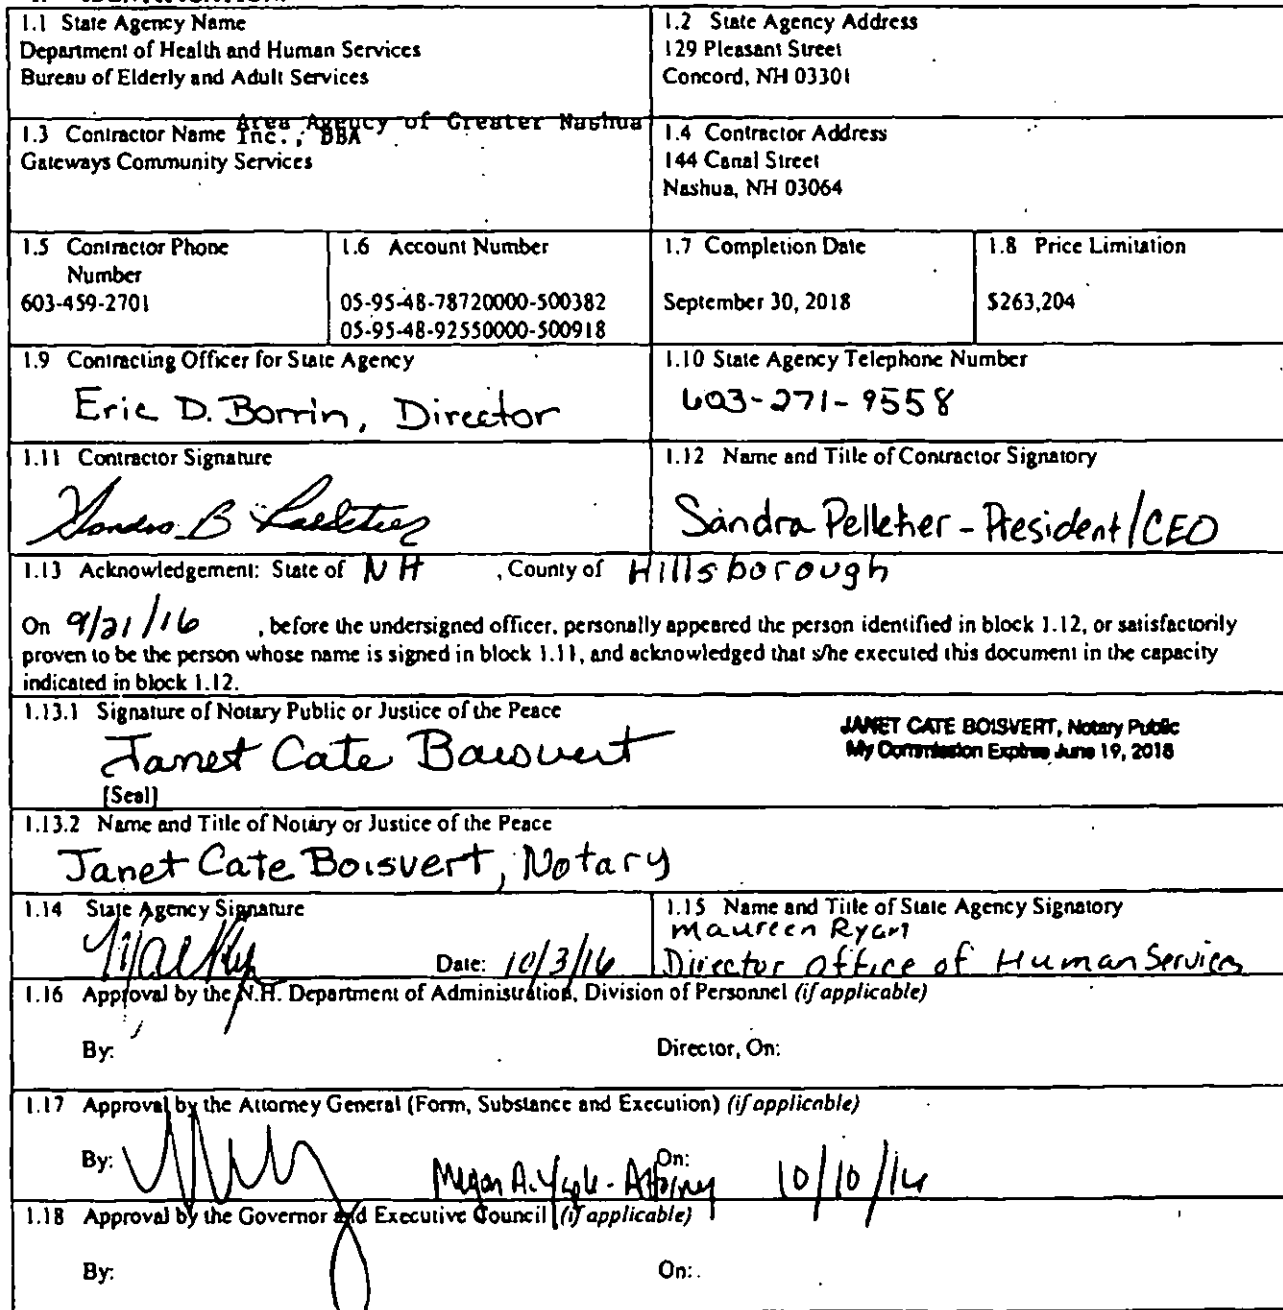 1.1 State Agency Name
Department of Health and Human Services
Bureau of Elderly and Adult Services
1.2 State Agency Address
129 Pleasant Street
Concord, NH 03301
1.3 Contractor Name Area Agency of Greater Nashua
Inc., DBA
Gateways Community Services
1.4 Contractor Address
144 Canal Street
Nashua, NH 03064
1.5 Contractor Phone
Number
603-459-2701
1.6 Account Number
05-95-48-78720000-500382
05-95-48-92550000-500918
1.7 Completion Date
September 30, 2018
1.8 Price Limitation
$263,204
1.9 Contracting Officer for State Agency
Eric D. Borrin, Director
1.10 State Agency Telephone Number
603-271-9558
1.11 Contractor Signature
Sandra B Pelletier
1.12 Name and Title of Contractor Signatory
Sandra Pelletier - President/CEO
1.13 Acknowledgement: State of NH , County of Hillsborough
On 9/21/16 , before the undersigned officer, personally appeared the person identified in block 1.12, or satisfactorily
proven to be the person whose name is signed in block 1.11, and acknowledged that s/he executed this document in the capacity
indicated in block 1.12.
1.13.1 Signature of Notary Public or Justice of the Peace
Janet Cate Boisvert
[Seal]
JANET CATE BOISVERT, Notary Public
My Commission Expires June 19, 2018
1.13.2 Name and Title of Notary or Justice of the Peace
Janet Cate Boisvert, Notary
1.14 State Agency Signature
Date: 10/3/16
1.15 Name and Title of State Agency Signatory
Maureen Ryan
Director Office of Human Services
1.16 Approval by the N.H. Department of Administration, Division of Personnel (if applicable)
By: Director, On:
1.17 Approval by the Attorney General (Form, Substance and Execution) (if applicable)
By: Megan A. - Attorney On: 10/10/16
1.18 Approval by the Governor and Executive Council (if applicable)
By: On: